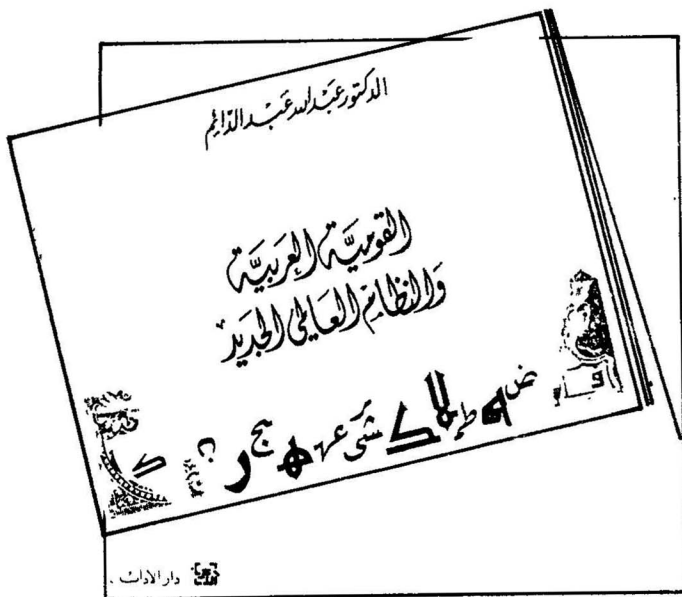 الدكتور عبد الله عبد الدائم
القومية العربية
والنظام العالمي الجديد
دار الآداب